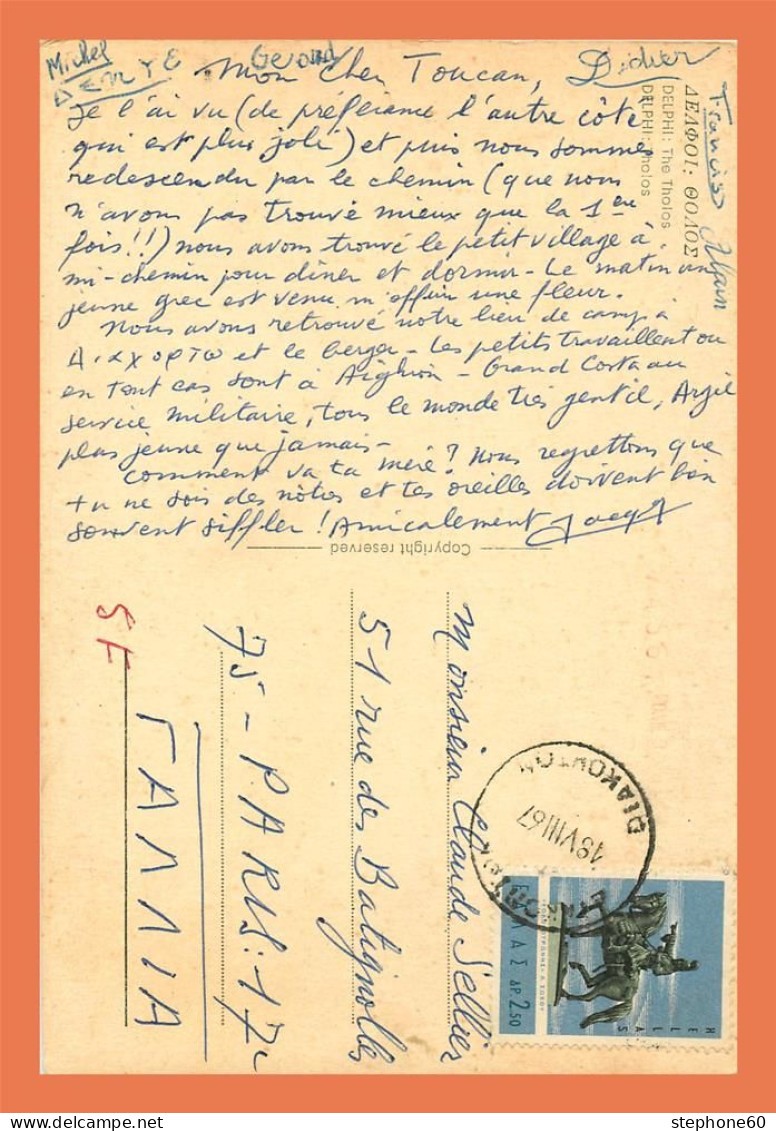 Michel
Gerard
Didier
Francis
Alain
Mon cher Toucan,
Je l'ai vu (de préférance l'autre côté
qui est plus joli) et puis nous sommes
redescendu par le chemin (que nous
n'avons pas trouvé mieux que la 1ere
fois!!) nous avons trouvé le petit village à
mi-chemin pour dîner et dormir - Le matin un
jeune grec est venu m'offrir une fleur.
Nous avons retrouvé notre lieu de camp à
et le berger - Les petits travaillent ou
en tout cas sont à Aighion - Grand Costa au
service militaire, tous le monde très gentil,
plus jeune que jamais -
Comment va ta mère? Nous regrettons que
tu ne sois des nôtres et tes oreilles doivent bien
souvent siffler! Amicalement
ΔΕΛΦΟΙ: ΘΟΛΟΣ
DELPHI: The Tholos
DELPHI: Tholos
Copyright reserved
Monsieur Claude Sellier
51 rue des Batignolles
75 - PARIS: 17e
ΓΑΛΛΙΑ
5F
18 VIII 67
ΕΛΛΑΣ ΔΡ. 2,50
HELLAS
stephone60